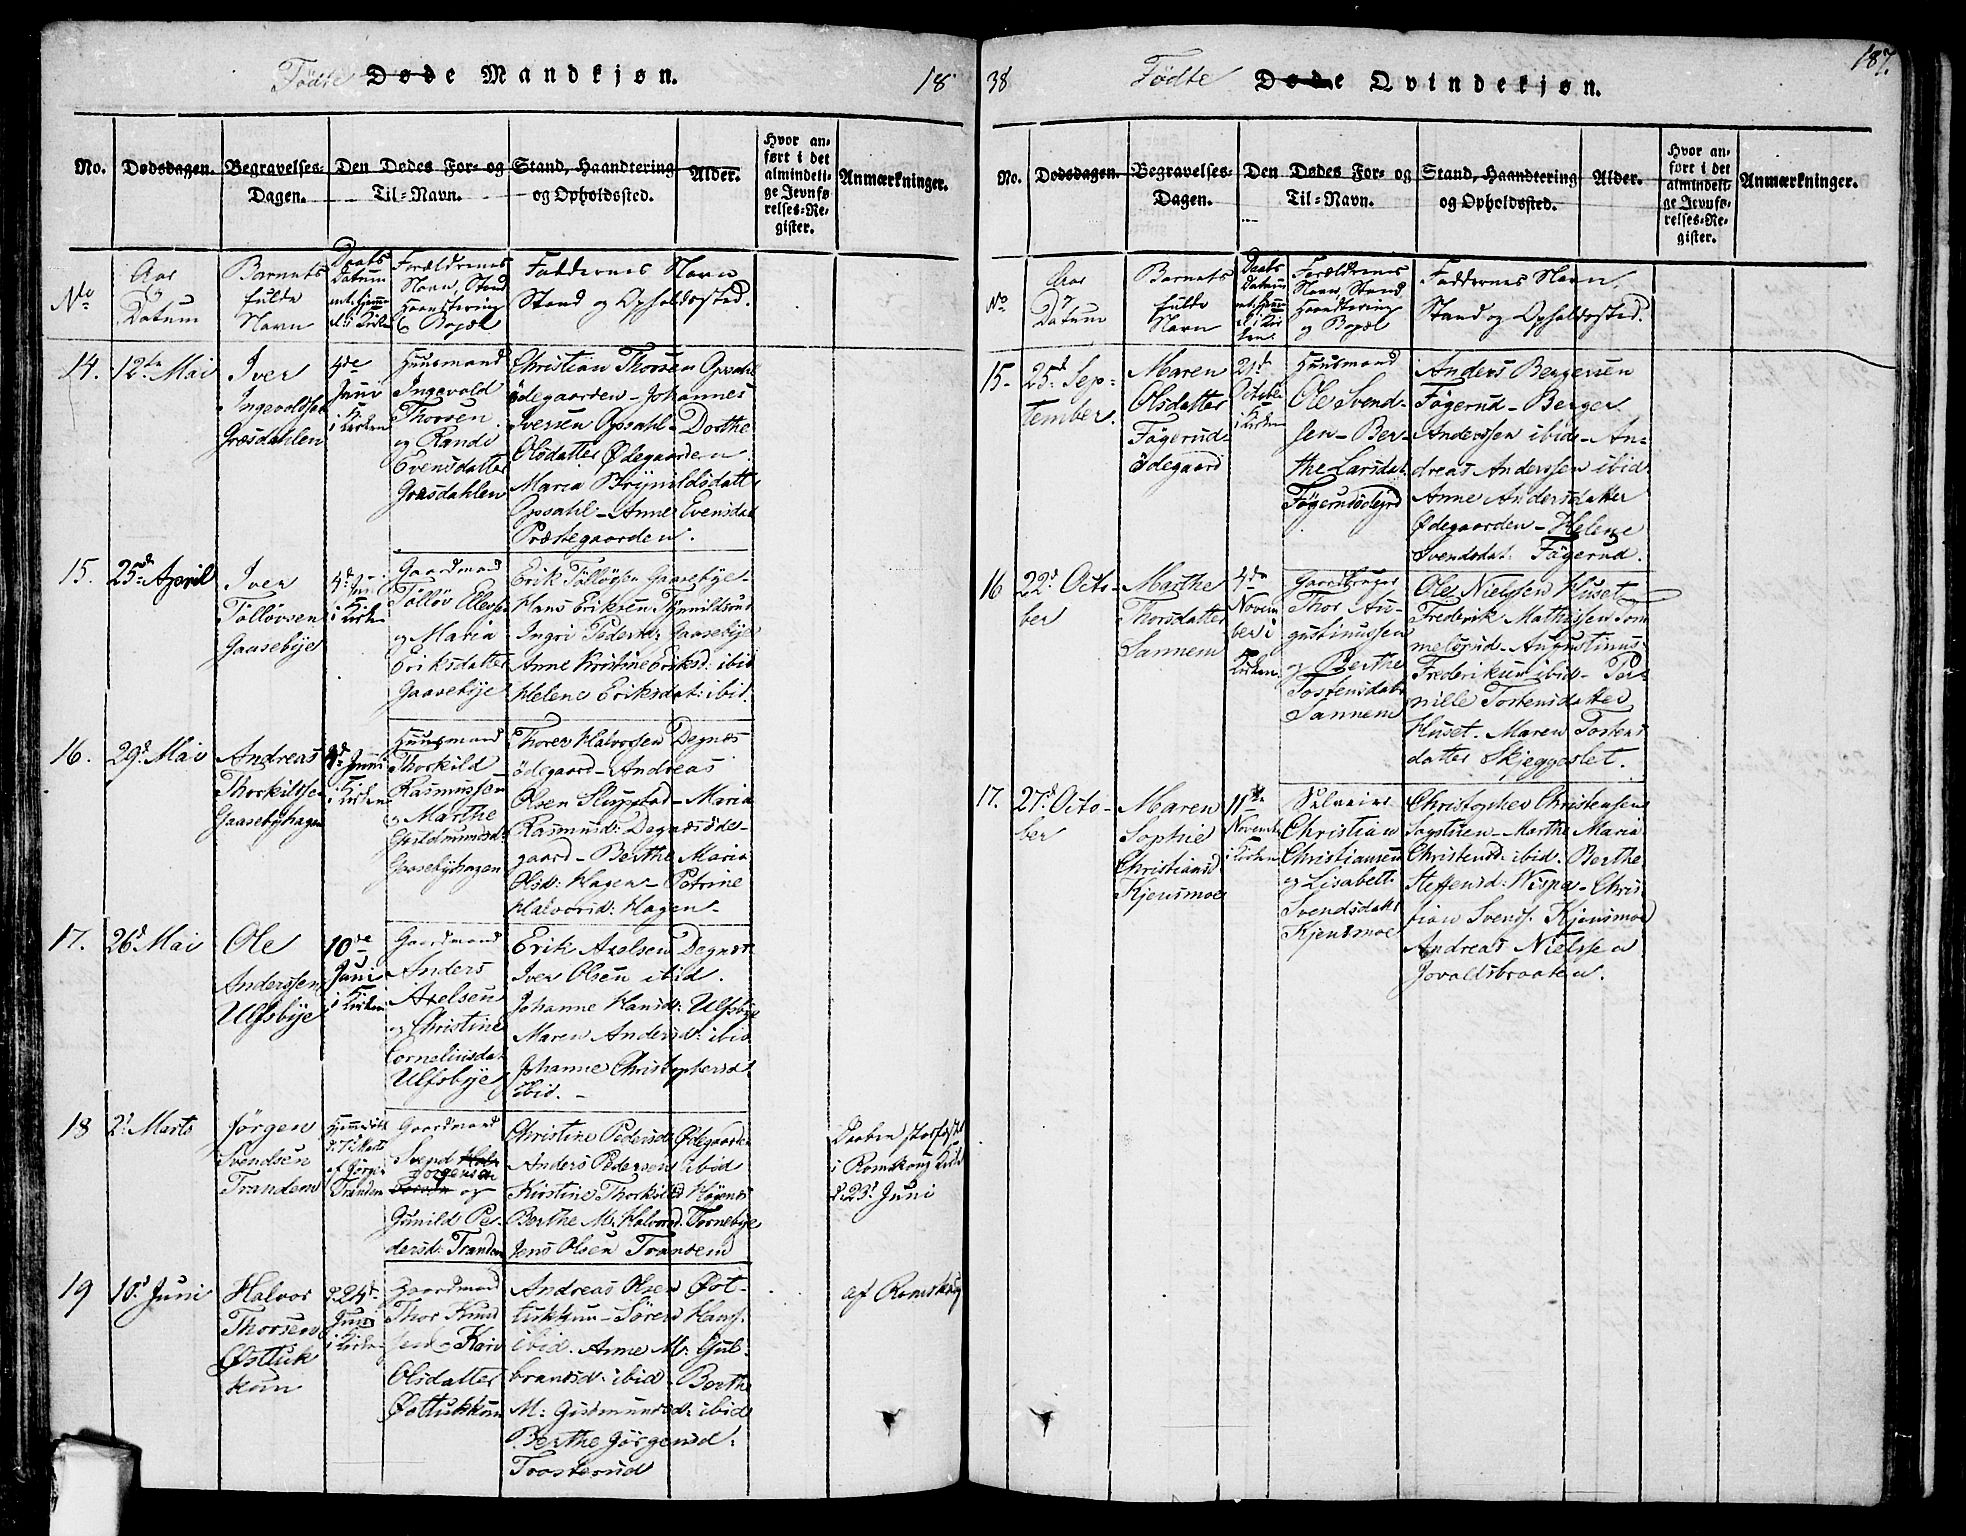 Födte Døde Mandkjøn. 18
No. Dødsdagen. Begravelses-Dagen. Den Dødes For- og Til-Navn. Stand, Haandtering og Opholdssted. Alder. Hvor anført i det almindelige Jevnførelses-Register. Anmærkninger.
No Aar og Datum
Barnets fulde Navn
Daabs Datum
Forældrenes Navn, Stand Haandtering & Bopæl
Faddernes Navn
Stand og Opholdssted.
14. 12te Mai
Iver
Ingevoldsen
Græsdahlen
4de
Juni
i Kirken
Huusmand
Ingevold
Thorsen
og Randi
Evensdatter
Græsdahlen
Christian Thorsen Opsahl
ödegaarden - Johannes
Iverssen Opsahl - Dorthe
Olsdatter Ødegaarden
Maria Brynildsdatt
Opsahl - Anne Evensdat
Præstegaarden.
15. 25de April
Iver
Tollövsen
Gaasebye
4de Juni
i Kirken
Gaardmand
Tollöv Ellefs
og Maria
Eriksdatter
Gaasebye
Erik Tollövsen Gaasebye -
Hans Eriksen
Ingri Pedersd: Gaasebye
Anne Kristine Eriksd: ibid
Helene Eriksdat: ibid.
16. 29d Mai
Andreas
Thorkilsse
Gaasebyhagen
4d Juni
i Kirken
Huusmand
Thorkild
Rasmussen
og Marthe
Guldmundsd:
Gaasebyhagen
Thorer Halvorsen Degnæs
ödegaard - Andreas
Olsen Slupstad - Maria
Rasmusd: Degnæsöde-
gaard - Berthe Maria
Olsd: Hagen - Petrine
Halvorsd: Hagen -
17. 26d Mai
Ole
Anderssen
Ulfsbye
10de
Juni
i Kirken
Gaardmand
Anders
Axelsen
og Christine
Corneliusdat
Ulfsbye
Erik Axelsen Degnæs
Iver Olsen ibid.
Johanne Hansd: Ulfsbye
Maren Andersd: ibid
Johanne Christophersd:
ibid. -
18 2d Marts
Jørgen
Svendsen
Trandem
Hjemmedöbt
d. 7d Marts
af Jörgen
Trandem
Gaardmand
Svend
Jörgensen
og
Gunild Pe-
dersd: Trandem
Christine Pedersd: Ødegaarden
Anders Pedersen ibid
Kirstine Thorkilsd
Berthe M: Halvorsd: Tornebye
Jens Olsen Trandem
Daaben stadfæstet
i Romskoug Kirke
d. 23d Juni
19 10d Juni
Halvor
Thorsen
Østtuk
kun
d. 24d
Juni
i Kirken
Gaardmand
Thor Knud
sen - Kari
Olsdatter
Østtukkun
Andreas Olsen Øst-
tukkun - Sören Hans.
ibid. Anne M: Gul-
brandsd: ibid - Berthe
M: Gudmundsd: ibid
Berthe Jörgensd:
Trosterud
af Romskog
38 Födte Døde Qvindekjøn. 187.
No. Dødsdagen. Begravelses-Dagen. Den Dødes For- og Til-Navn. Stand, Haandtering og Opholdssted. Alder. Hvor anført i det almindelige Jevnførelses-Register. Anmærkninger.
No Aar og Datum
Barnets fulde Navn
Daabs Datum
Forældrenes Navn, Stand Haandtering og Bopæl
Faddernes Navn,
Stand og Opholdssted.
15- 25d Sep-
tember.
Maren
Olsdatter
Fögerud-
ödegaard
21d
October
i Kirken
Huusmand
Ole Svend-
sen - Ber-
the Larsdat
Fögerudödegrd
Anders Bergersen
Fögerud - Berger
Anderssen ibid - An-
dreas Anderssen ibid
Anne Andersdatter
Ødegaarden - Helene
Svendsdat: Fögerud.
16 22d Octo-
ber
Marthe
Thorsdatter
Sannem
4de
Novem
ber i
Kirken
Gaardbruger
Thor Au-
gustinussen
og Berthe
Tostensdatt
Sannem
Ole Nielssen Huset
Frederik Mathissen Tom
melsrud - Augustinus
Frederiksen ibid - Per-
nille Tostensdatter
Huset. Maren Tostens
datter Skjeggestet.
17. 27d Octo-
ber
Maren
Sophie
Christiansd
Kjensmoe
11te
November
i Kirken
Christian
Christiansen
og Lisabett
Svendsdatt
Kjensmoe
Christopher Christensen
Sagstuen - Marthe Maria
Christensd: ibid. Berthe
Steffensd: Wispa - Chris
tian Svends. Kjensmoe
Andreas Nielssen
Jovaldsbraaten.